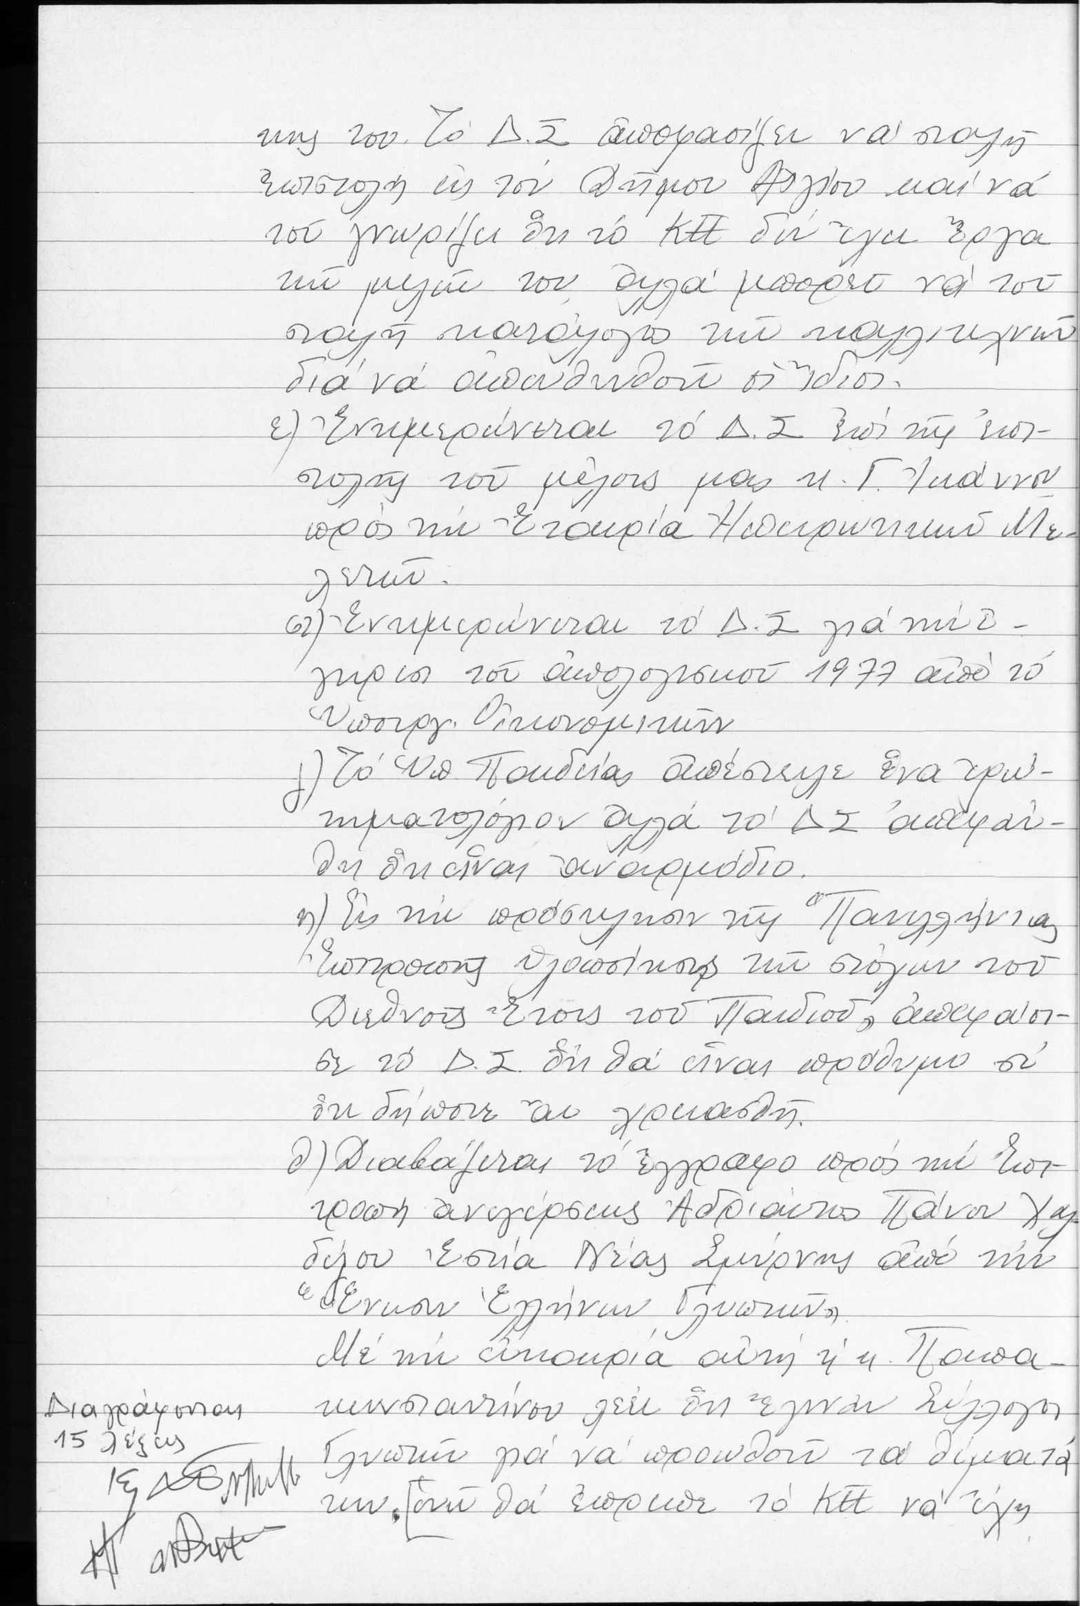 κης του. Τό Δ.Σ ἀποφασίζει νά σταλῇ
ἐπιστολή εἰς τόν Δῆμον Αἰγίου καί νά
τοῦ γνωρίζει ὅτι τό ΚΠ δέν ἔχει ἔργα
τῶν μελῶν του, ἀλλά μπορεῖ νά τοῦ
σταλῇ κατάλογος τῶν καλλιτεχνῶν
διά νά ἀπευθυνθοῦν οἱ ἴδιοι.
ε) Ἐνημερώνεται τό Δ.Σ ἐπί τῆς ἐπι-
στολῆς τοῦ μέλους μας κ. Γ. Ἰωάννου
πρός τήν Ἑταιρία Ἠπειρωτικῶν Με-
λετῶν.
στ) Ἐνημερώνεται τό Δ.Σ γιά τήν ἔ-
γκριση τοῦ ἀπολογισμοῦ 1977 ἀπό τό
Ὑπουργ. Οἰκονομικῶν
ζ) Τό Ὑπ Παιδείας ἀπέστειλε ἕνα ἐρω-
τηματολόγιον ἀλλά τό ΔΣ ἀπεφάν-
θη ὅτι εἶναι ἀναρμόδιο.
η) Εἰς τήν πρόσκλησιν τῆς "Πανελλήνιας
Ἐπιτροπῆς Ὑλοποίησης τῶν στόχων τοῦ
Διεθνοῦς Ἔτους τοῦ Παιδιοῦ", ἀπεφάσι-
σε τό Δ.Σ. ὅτι θά εἶναι πρόθυμο σέ
ὅτι δήποτε ἄν χρειασθῇ.
θ) Διαβάζεται τό ἔγγραφο πρός τήν Ἐπι-
τροπή ἀνεγέρσεως Ἀδριάντος Πάνου Χαλ
δέζου Ἑστία Νέας Σμύρνης ἀπό τήν
"Ἕνωσιν Ἑλλήνων Γλυπτῶν".
Μέ τήν εὐκαιρία αὐτή ἡ κ. Παπα-
κωνσταντίνου λέει ὅτι ἔγιναν Σύλλογοι
Γλυπτῶν γιά νά προωθοῦν τά θέματά
των. [ἐνῶ θά ἔπρεπε τό ΚΠ νά ἔχη
Διαγράφονται
15 λέξεις